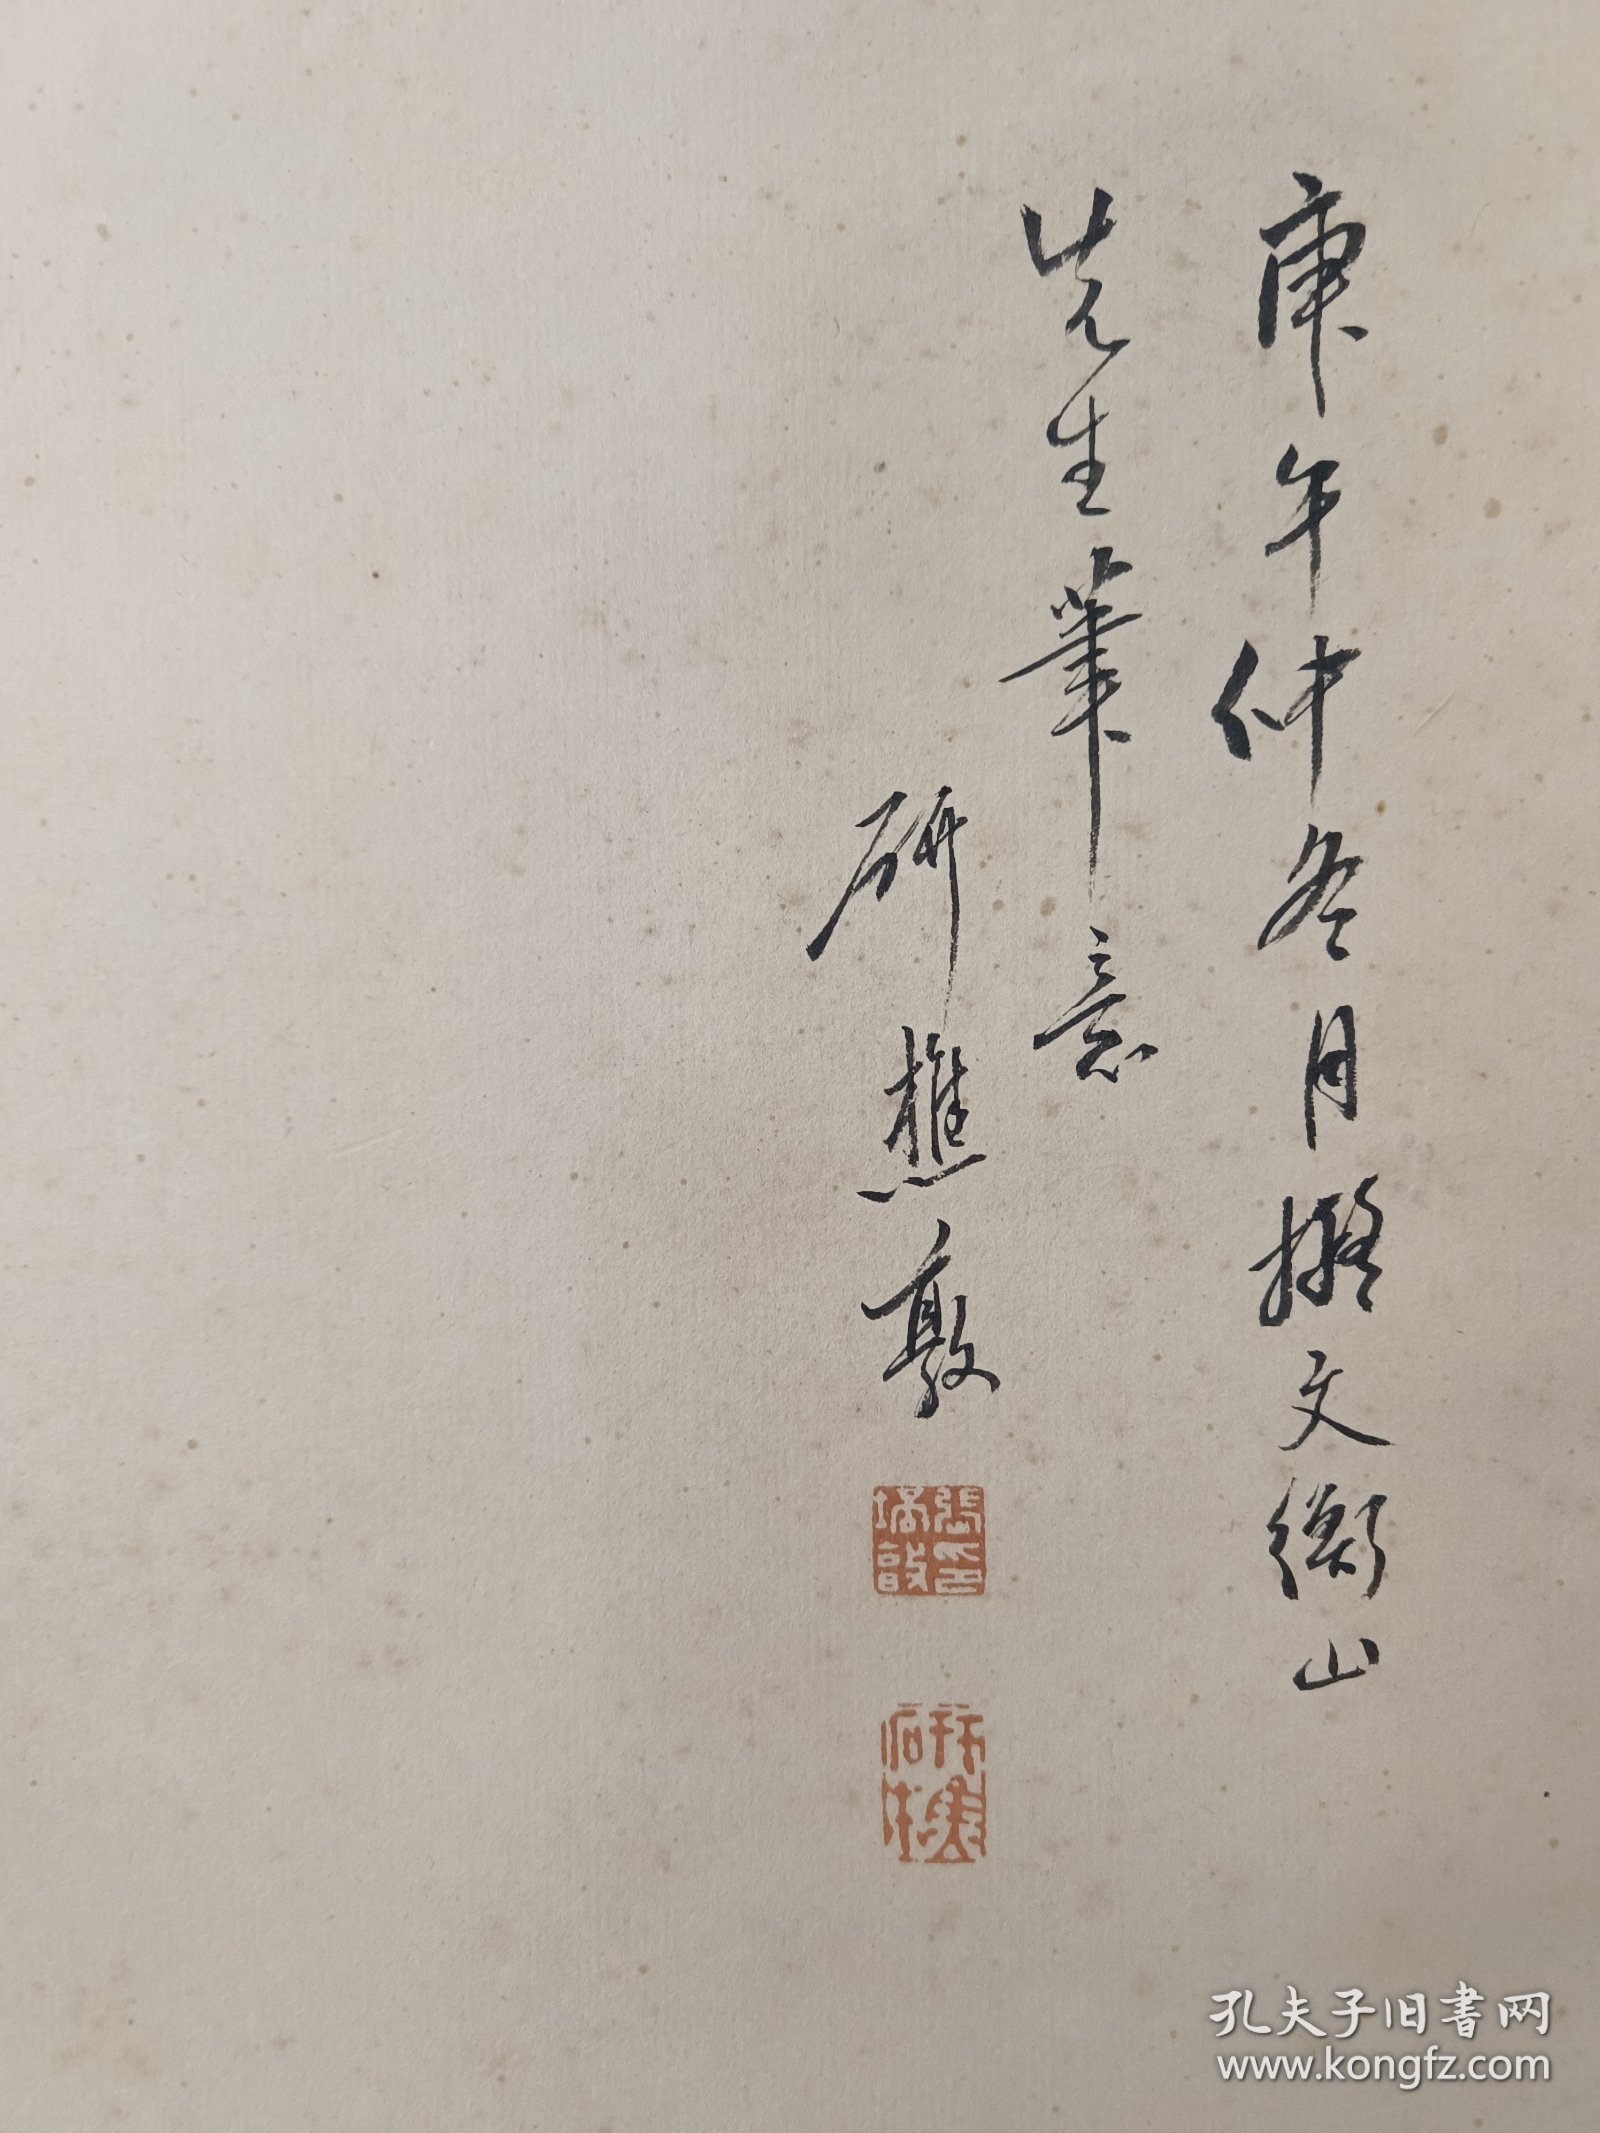 庚午仲冬月擬文衡山
先生筆意
研樵
研樵
孔夫子旧書网
www.kongfz.com